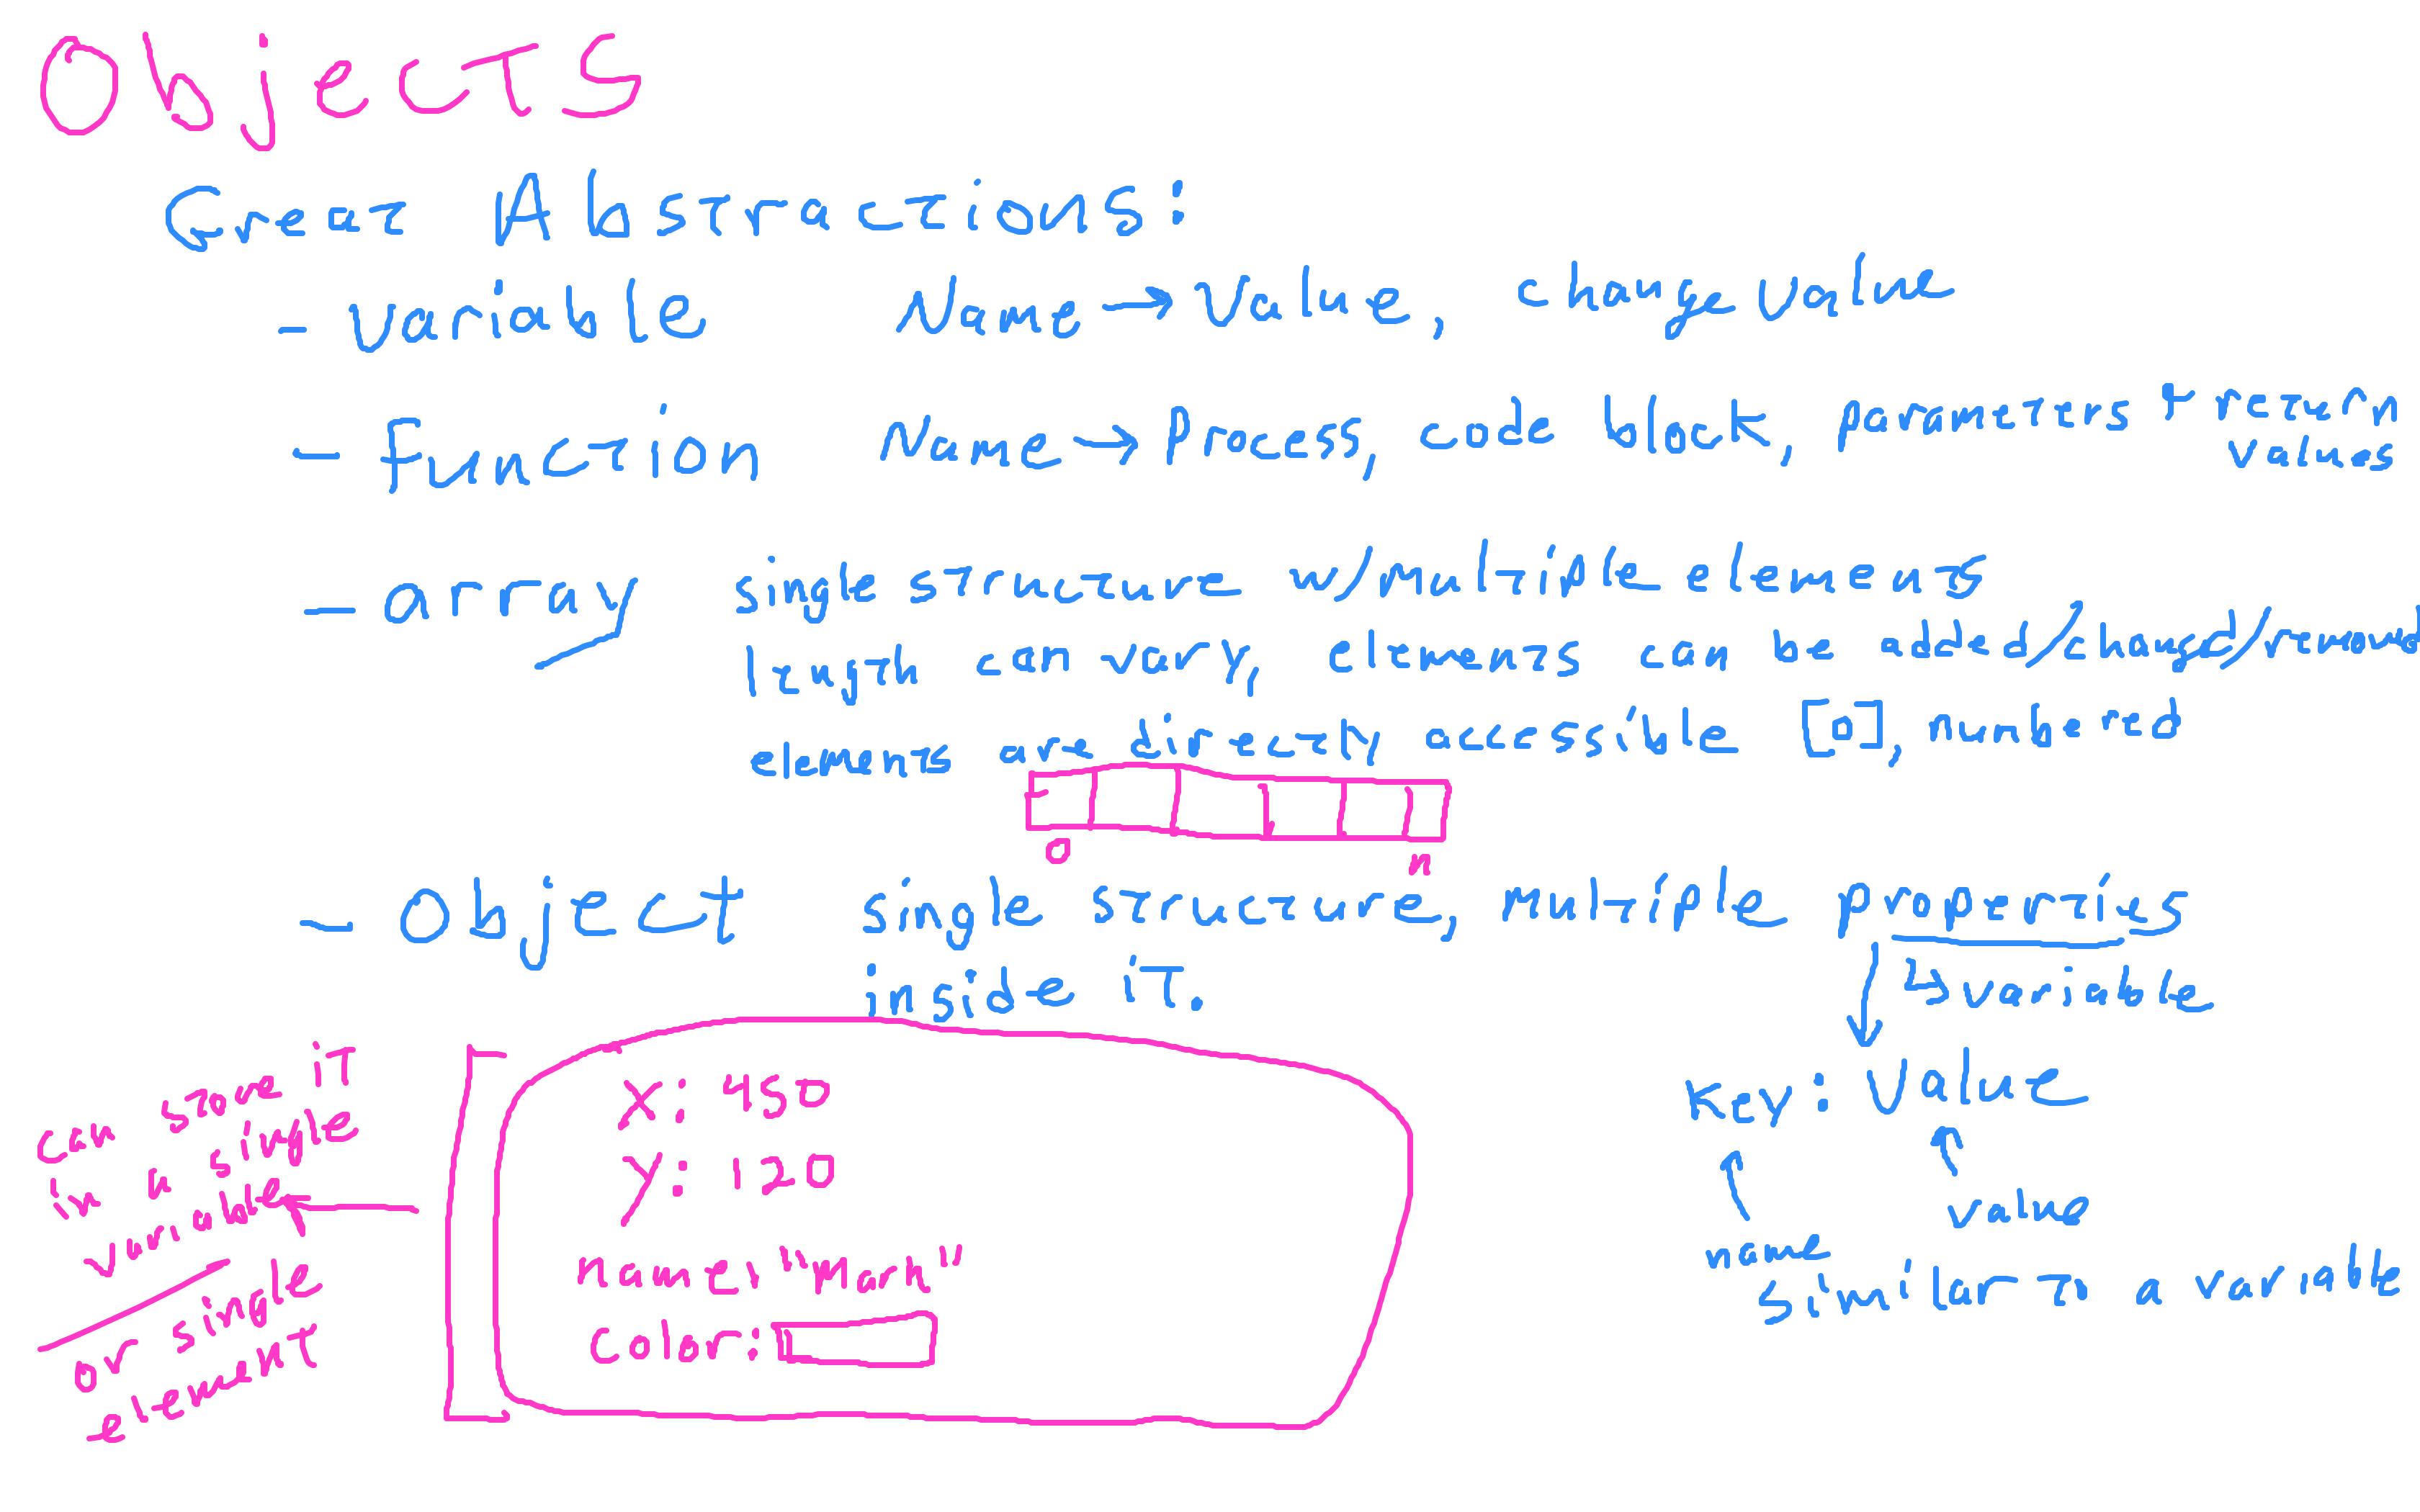 Objects
Great Abstractions:
- Variable Name → Value, change value
- Function Name → Process, code block, parameters + return values
- array single structure w/multiple elements
length can vary, elements can be added/changed/removed
elements are directly accessible [0], numbered
0 n
- Object single structure, multiple properties
inside it.
↳ variable
Key: Value
name value
similar to a variable
x: 450
y: 120
name: "Main"
color:
can store it
in a single
variable
or single
element